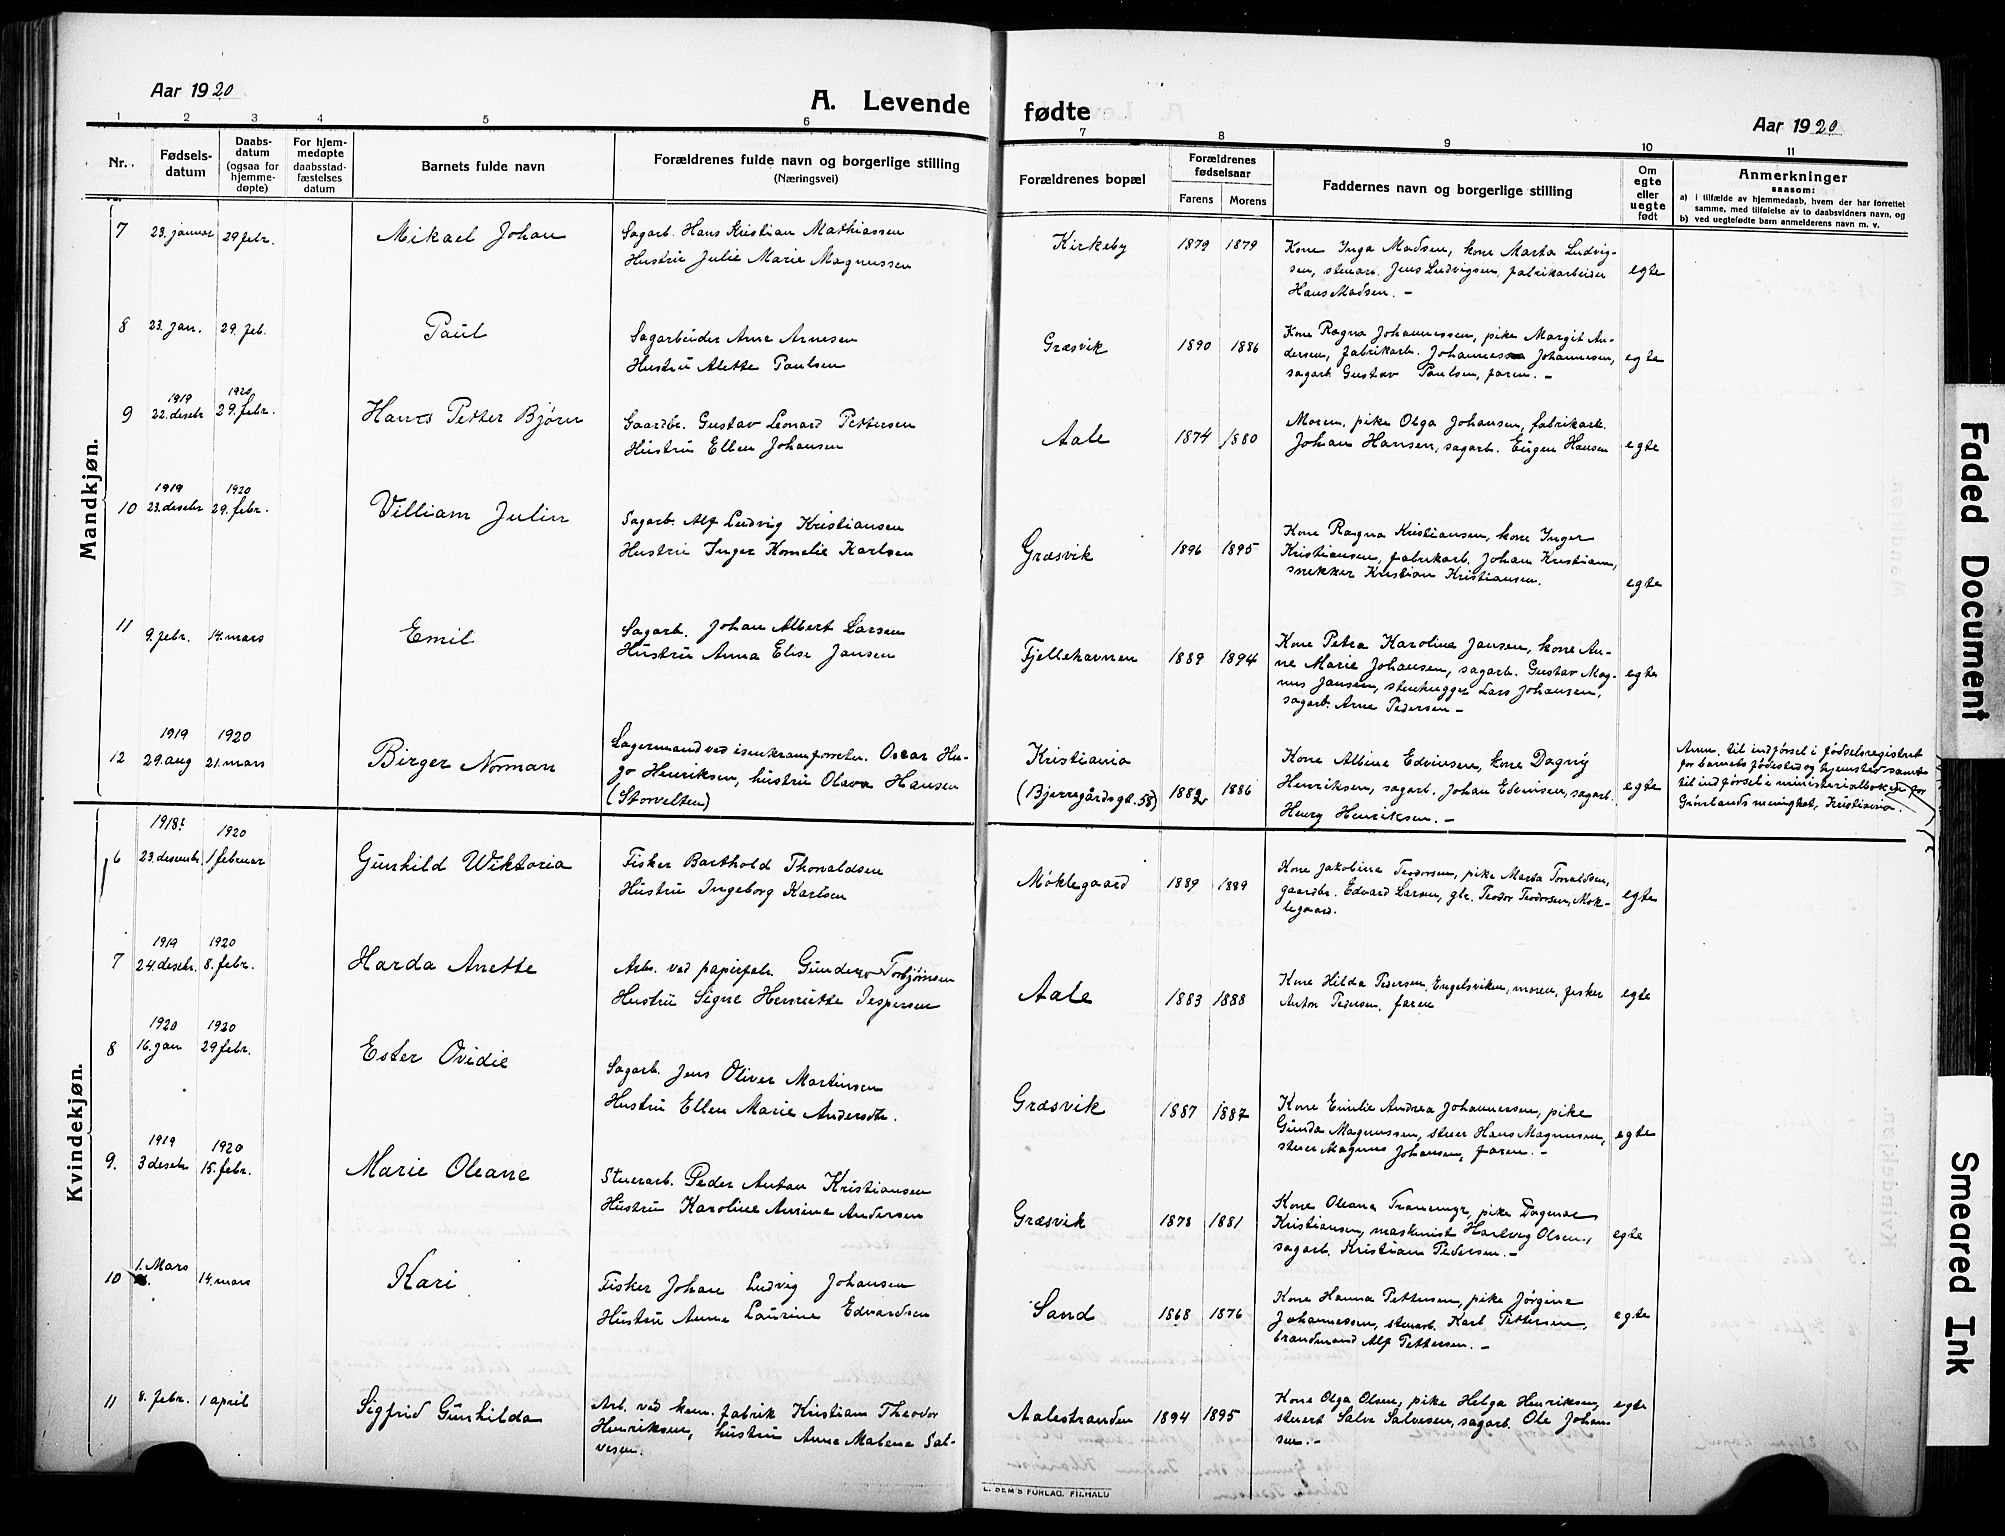 Aar 1920
A. Levende
1 2 3 4 5 6
Nr. Fødselsdatum Daabsdatum (ogsaa for hjemmedøpte) For hjemmedøpte daabsstadfæstelses datum Barnets fulde navn Forældrenes fulde navn og borgerlige stilling (Næringsvei)
fødte
Aar 1920
7 8 9 10 11
Forældrenes bopæl Forældrenes fødselsaar Farens Morens Faddernes navn og borgerlige stilling Om egte eller uegte født Anmerkninger
saasom:
a) i tilfælde av hjemmedaab, hvem der har forrettet
samme, med tilføielse av to daabsvidners navn, og
b) ved uegtefødte barn anmelderens navn m. v.
Mandkjøn.
7 23. januar 29 febr. Mikael Johan Sagarb. Hans Kristian Mathiassen
Hustru Julie Marie Magnussen
Kirkeby 1879 1879 Kone Inga Madsen, kone Marta Ludvig-
sen, stenarb. Jens Ludvigsen, fabrikarbeider
Hans Madsen. –
egte
8 23. jan. 29. feb. Paul Sagarbeider Arne Arnesen
Hustru Alette Paulsen
Græsvik 1890 1886 Kone Ragna Johannessen, pike Margit An-
dersen, fabrikarb. Johannes Johannesen,
sagarb. Gustav Paulsen, faren. –
egte
9 1919 22. desebr 1920 29. febr. Hans Petter Bjørn Gaardbr. Gustav Leonard Pettersen
Hustru Ellen Johansen
Aale 1874 1880 Moren, pike Olga Johansen, fabrikarb.
Johan Hansen, sagarb. Eugen Hansen
egte
10 1919 23. desebr 1920 29. febr. Villiam Julin Sagarb. Alf Ludvig Kristiansen
Hustru Inger Kornelie Karlsen
Græsvik 1896 1895 Kone Ragna Kristiansen, kone Inger
Kristiansen, fabrikarb. Johan Kristians,
snekker Kristian Kristiansen.
egte
11 9. febr. 14. mars Emil Sagarb. Johan Albert Larsen
Hustru Anna Elise Jansen
Fjellehavnen 1889 1894 Kone Petra Karoline Jansen, kone An-
ne Marie Johansen, sagarb. Gustav Mag-
nus Jansen, stenhugger Lars Johansen,
sagarb. Arne Pedersen –
egte
12 1919 29. aug 1920 21. mars Birger Norman Lagermand ved isenkramforretn. Oscar Hu-
go Henriksen, hustru Olava Hansen
(Storvelten)
Kristiania
(Bjerregårdsgt. 58) 1882 1886 Kone Albine Edvinsen, kone Dagny
Henriksen, sagarb. Johan Edvinsen, sagarb.
Henry Henriksen. –
egte
Anm. til indførsel i fødselsregistret
for barnets fødested og hjemsted samt
til indførsel i ministerialboken for
Grønlands menighet, Kristiania.
Kvindekjøn.
6 1918! 23. desembr 1920 1 februar Gunhild Wiktoria Fisker Barthold Thonaldsen
Hustru Ingeborg Karlsen
Møklegaard 1889 1889 Kone Jakobine Teodorsen, pike Marta Tonaldsen,
gaardbr. Edvard Larsen, gbr. Teodor Teodorsen, Møk-
legaard.
egte
7 1919 24. desebr. 1920 8. febr. Harda Anette Arb. ved papirfabr. Gunder Torbjørnsen
Hustru Signe Henriette Jespersen
Aale 1883 1888 Kone Hilda Pedersen, Engelsviken, moren, fisker
Anton Pedersen, faren
egte
8 1920 16. jan 1920 29 febr. Ester Ovidie Sagarb. Jens Oliver Martinsen
Hustru Ellen Marie Andersdtr.
Græsvik 1887 1887 Kone Emilie Andrea Johannesen, pike
Gunda Magnussen, streer Hans Magnusen,
streer Magnus Johansen, faren. –
egte
9. 1919 3 desebr 1920 15. febr. Marie Oleane Stenarb. Peder Anton Kristiansen
Hustru Karoline Annine Andersen
Græsvik 1878 1881 Kone Oleana Tranemyr, pike Dagmar
Kristiansen, maskinist Hartvig Olsen,
sagarb. Kristian Pedersen. –
egte
10 1. Mars 14. mars Kari Fisker Johan Ludvig Johansen
Hustru Anne Laurine Edvardsen
Sand 1868 1876 Kone Hanna Pettersen, pike Jørgine
Johannessen, stenarb. Karl Pettersen,
brandmand Alf Pettersen. –
egte
11 8. febr. 1 april Sigfrid Gunhilda Arb. ved kem. fabrik Kristian Theodor
Henriksen, hustru Anne Malene Sal-
vesen.
Aalestranden 1894 1895 Kone Olga Olsen, pike Helga Henriksen,
stenarb Salve Salvesen, sagarb. Ole Johan-
sen. –
egte
E. SEM'S FORLAG, F.HALD
Faded Document
Smeared Ink